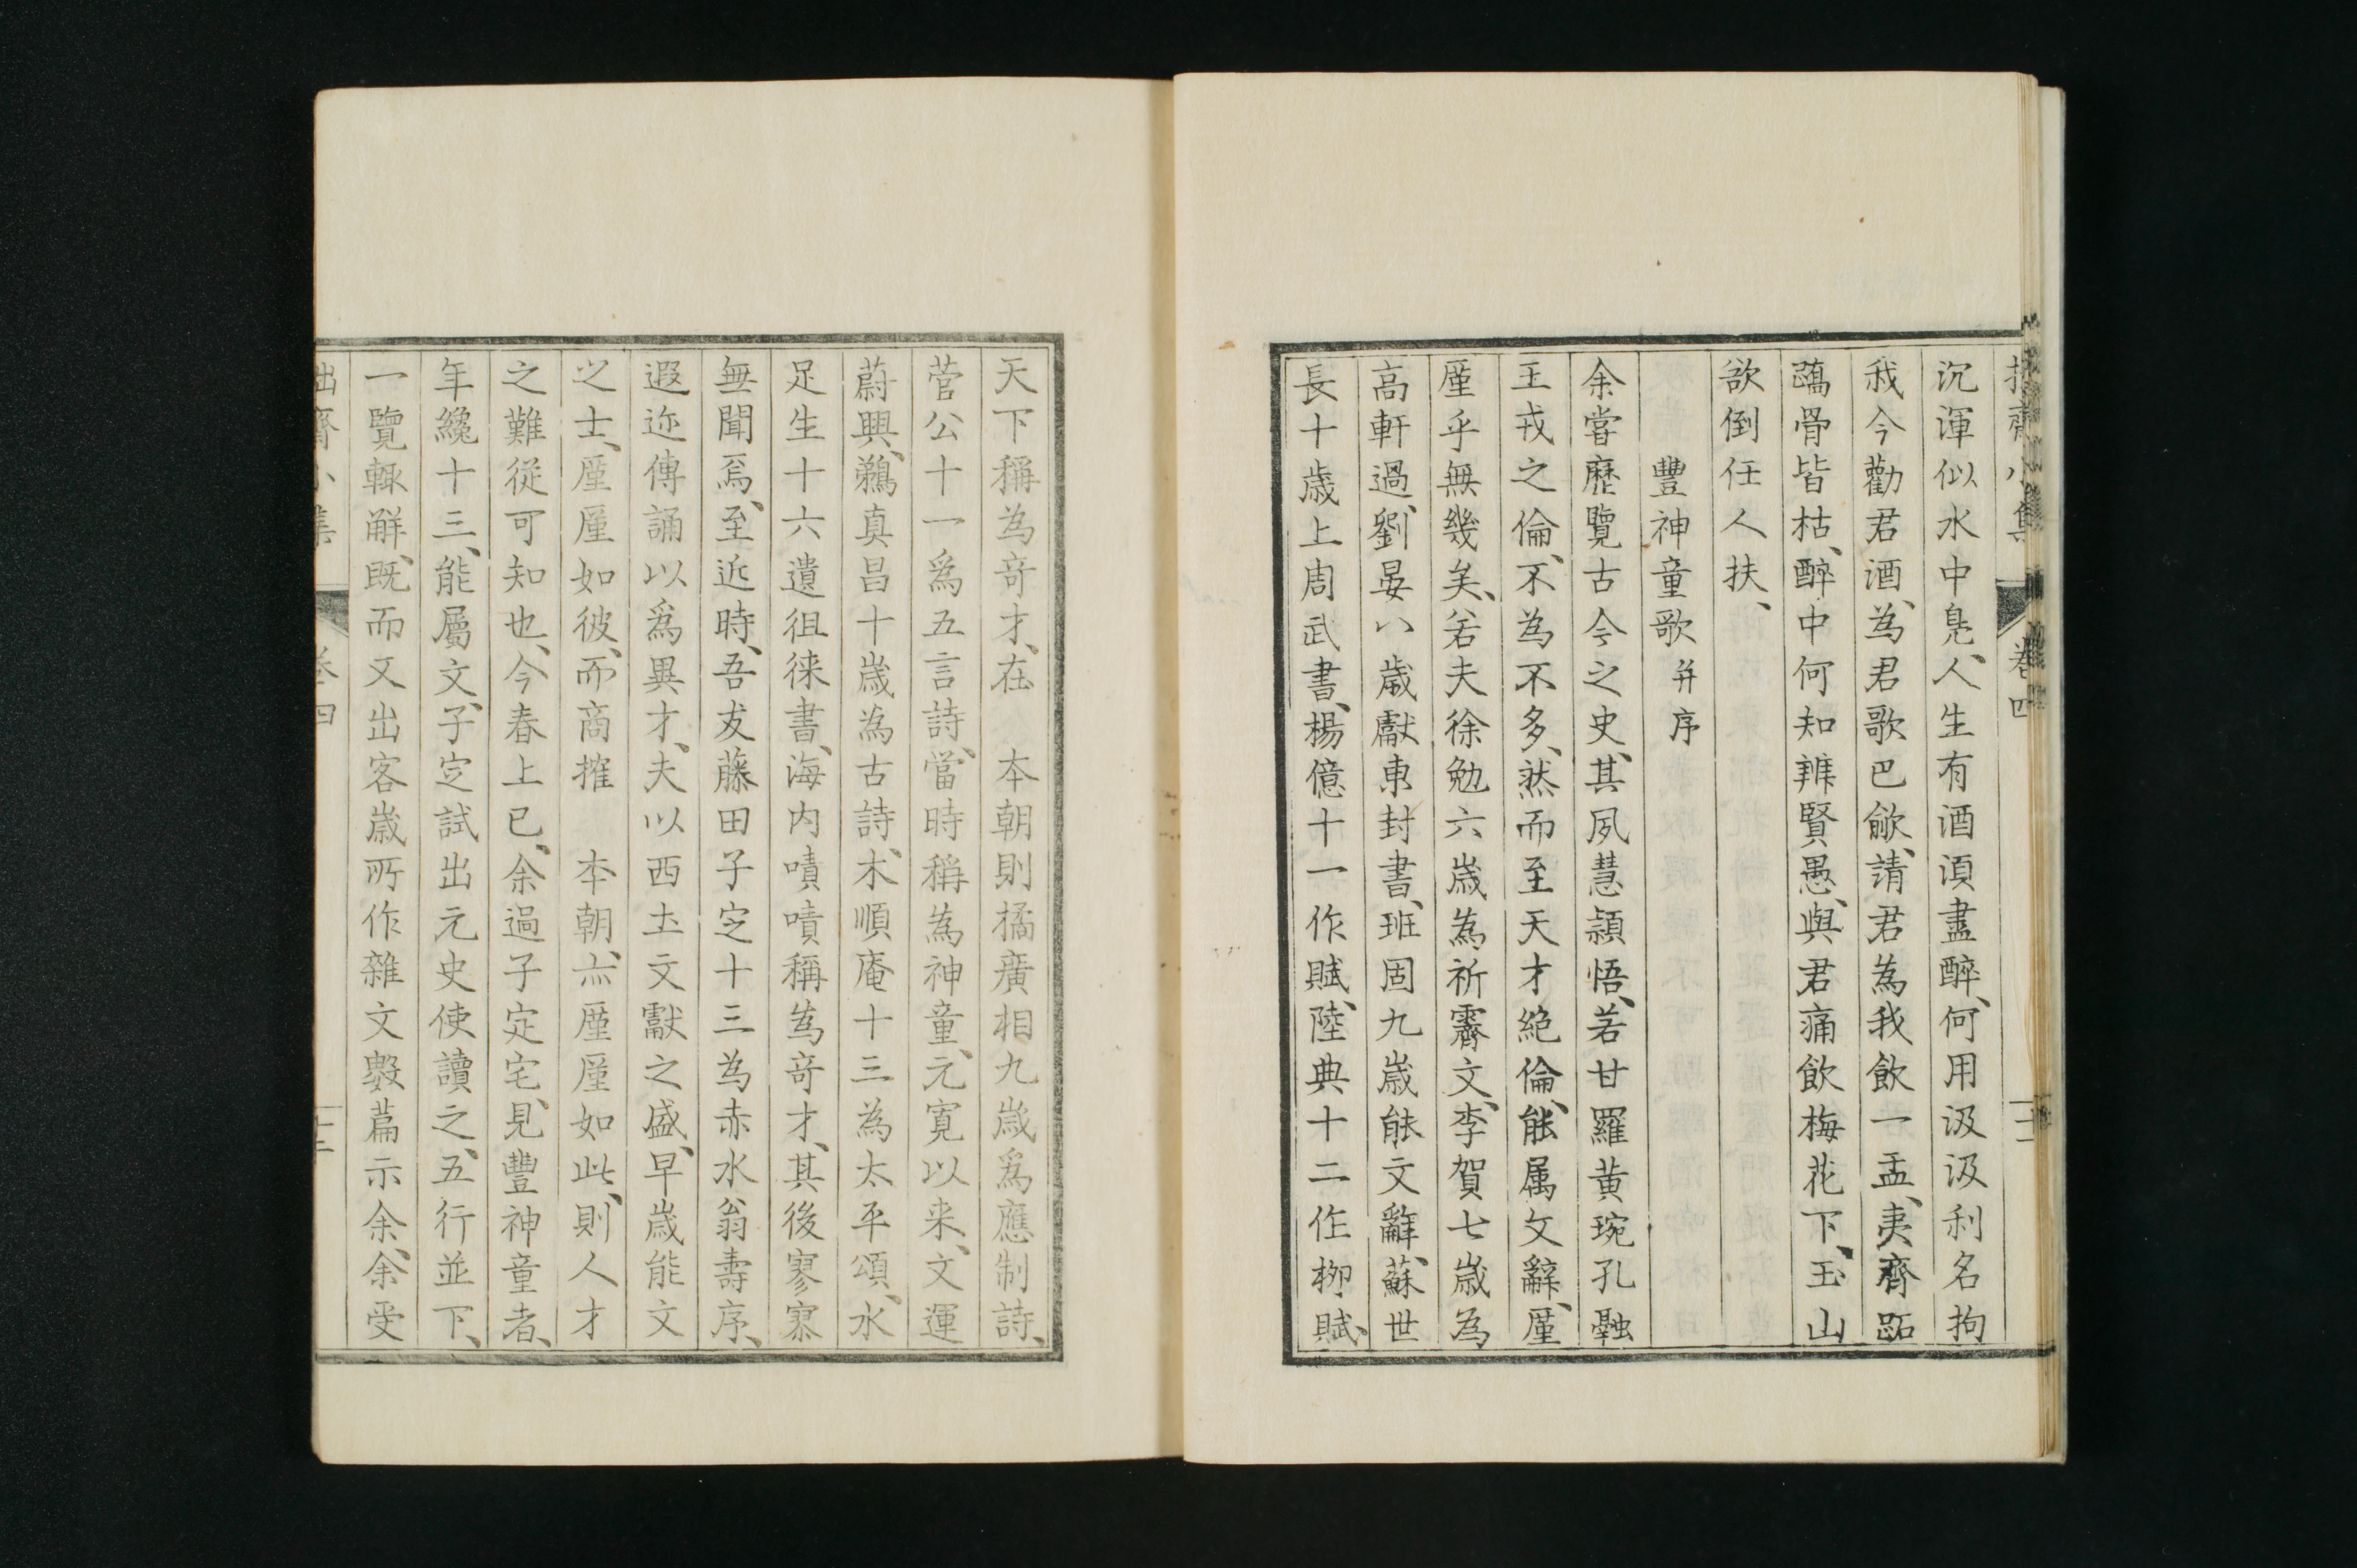 拙齋小集 卷四
沉渾似水中鳧、人生有酒須盡醉、何用汲汲利名拘
我今勸君酒、為君歌巴歈、請君為我飲一盂、夷齊跖
蹻骨皆枯、醉中何知辨賢愚、與君痛飲梅花下、玉山
欲倒任人扶、
豐神童歌并序
余嘗歷覽古今之史、其夙慧穎悟、若甘羅黄琬孔融
王戎之倫、不為不多、然而至天才絶倫、能属文辭、厪
厪乎無幾矣、若夫徐勉六歳為祈霽文、李賀七歳為
高軒過、劉晏八歳獻東封書、班固九歳能文辭、蘇世
長十歳上周武書、楊億十一作賦、陸典十二作栁賦、
天下稱為竒才、在 本朝則橘廣相九歳爲應制詩、
菅公十一爲五言詩、當時稱為神童、元寛以来、文運
蔚興、鵜真昌十歳為古詩、木順庵十三為太平頌、水
足生十六遺徂徠書、海内嘖嘖稱為竒才、其後寥寥
無聞焉、至近時、吾友藤田子定十三為赤水翁壽序、
遐迩傳誦以爲異才、夫以西土文獻之盛、早歳能文
之士、厪厪如彼、而商搉 本朝、亦厪厪如此、則人才
之難從可知也、今春上巳、余過子定宅、見豐神童者、
年纔十三、能屬文、子定試出元史使讀之、五行並下、
一覽輙解、既而又出客歳所作雜文數萹示余、余受
拙齊小集 卷四